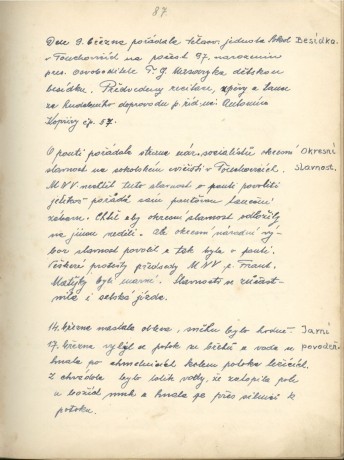 87.
Dne 9. března pořádala tělocv. jednota Sokol Besídka.
v Touchovicích na počest 97. narozenin
pres. osvoboditele T. G. Masaryka dětskou
besídku. Předvedeny recitace, zpěvy a tance
za hudebního doprovodu p. říd. uči. Antonína
Kopřivy čp. 57.
O pouti pořádala strana nár. socialistů okresní Okresní
slavnost na sokolském cvičišti v Touchovicích. slavnost.
MNV nechtěl tuto slavnost o pouti povoliti
jelikož pořádá sám pouťovou taneční
zábavu. Chtěl aby okresní slavnost odložily
na jinou neděli. Ale okresní národní vý-
bor slavnost povolil a tak byla o pouti.
Veškeré protesty předsedy MNV p. Frant.
Matějky byli marné. Slavnosti se zúčast-
nila i selská jízda.
14. března nastala obleva, sněhu bylo hodně - Jarní
17. března vylil se potok ze břehů a voda se povodeň
hnala po chmelnicích kolem potoka ležících.
Z chvádola bylo tolik vody, že zatopila pole
a hnala se přes silnici k
potoku.